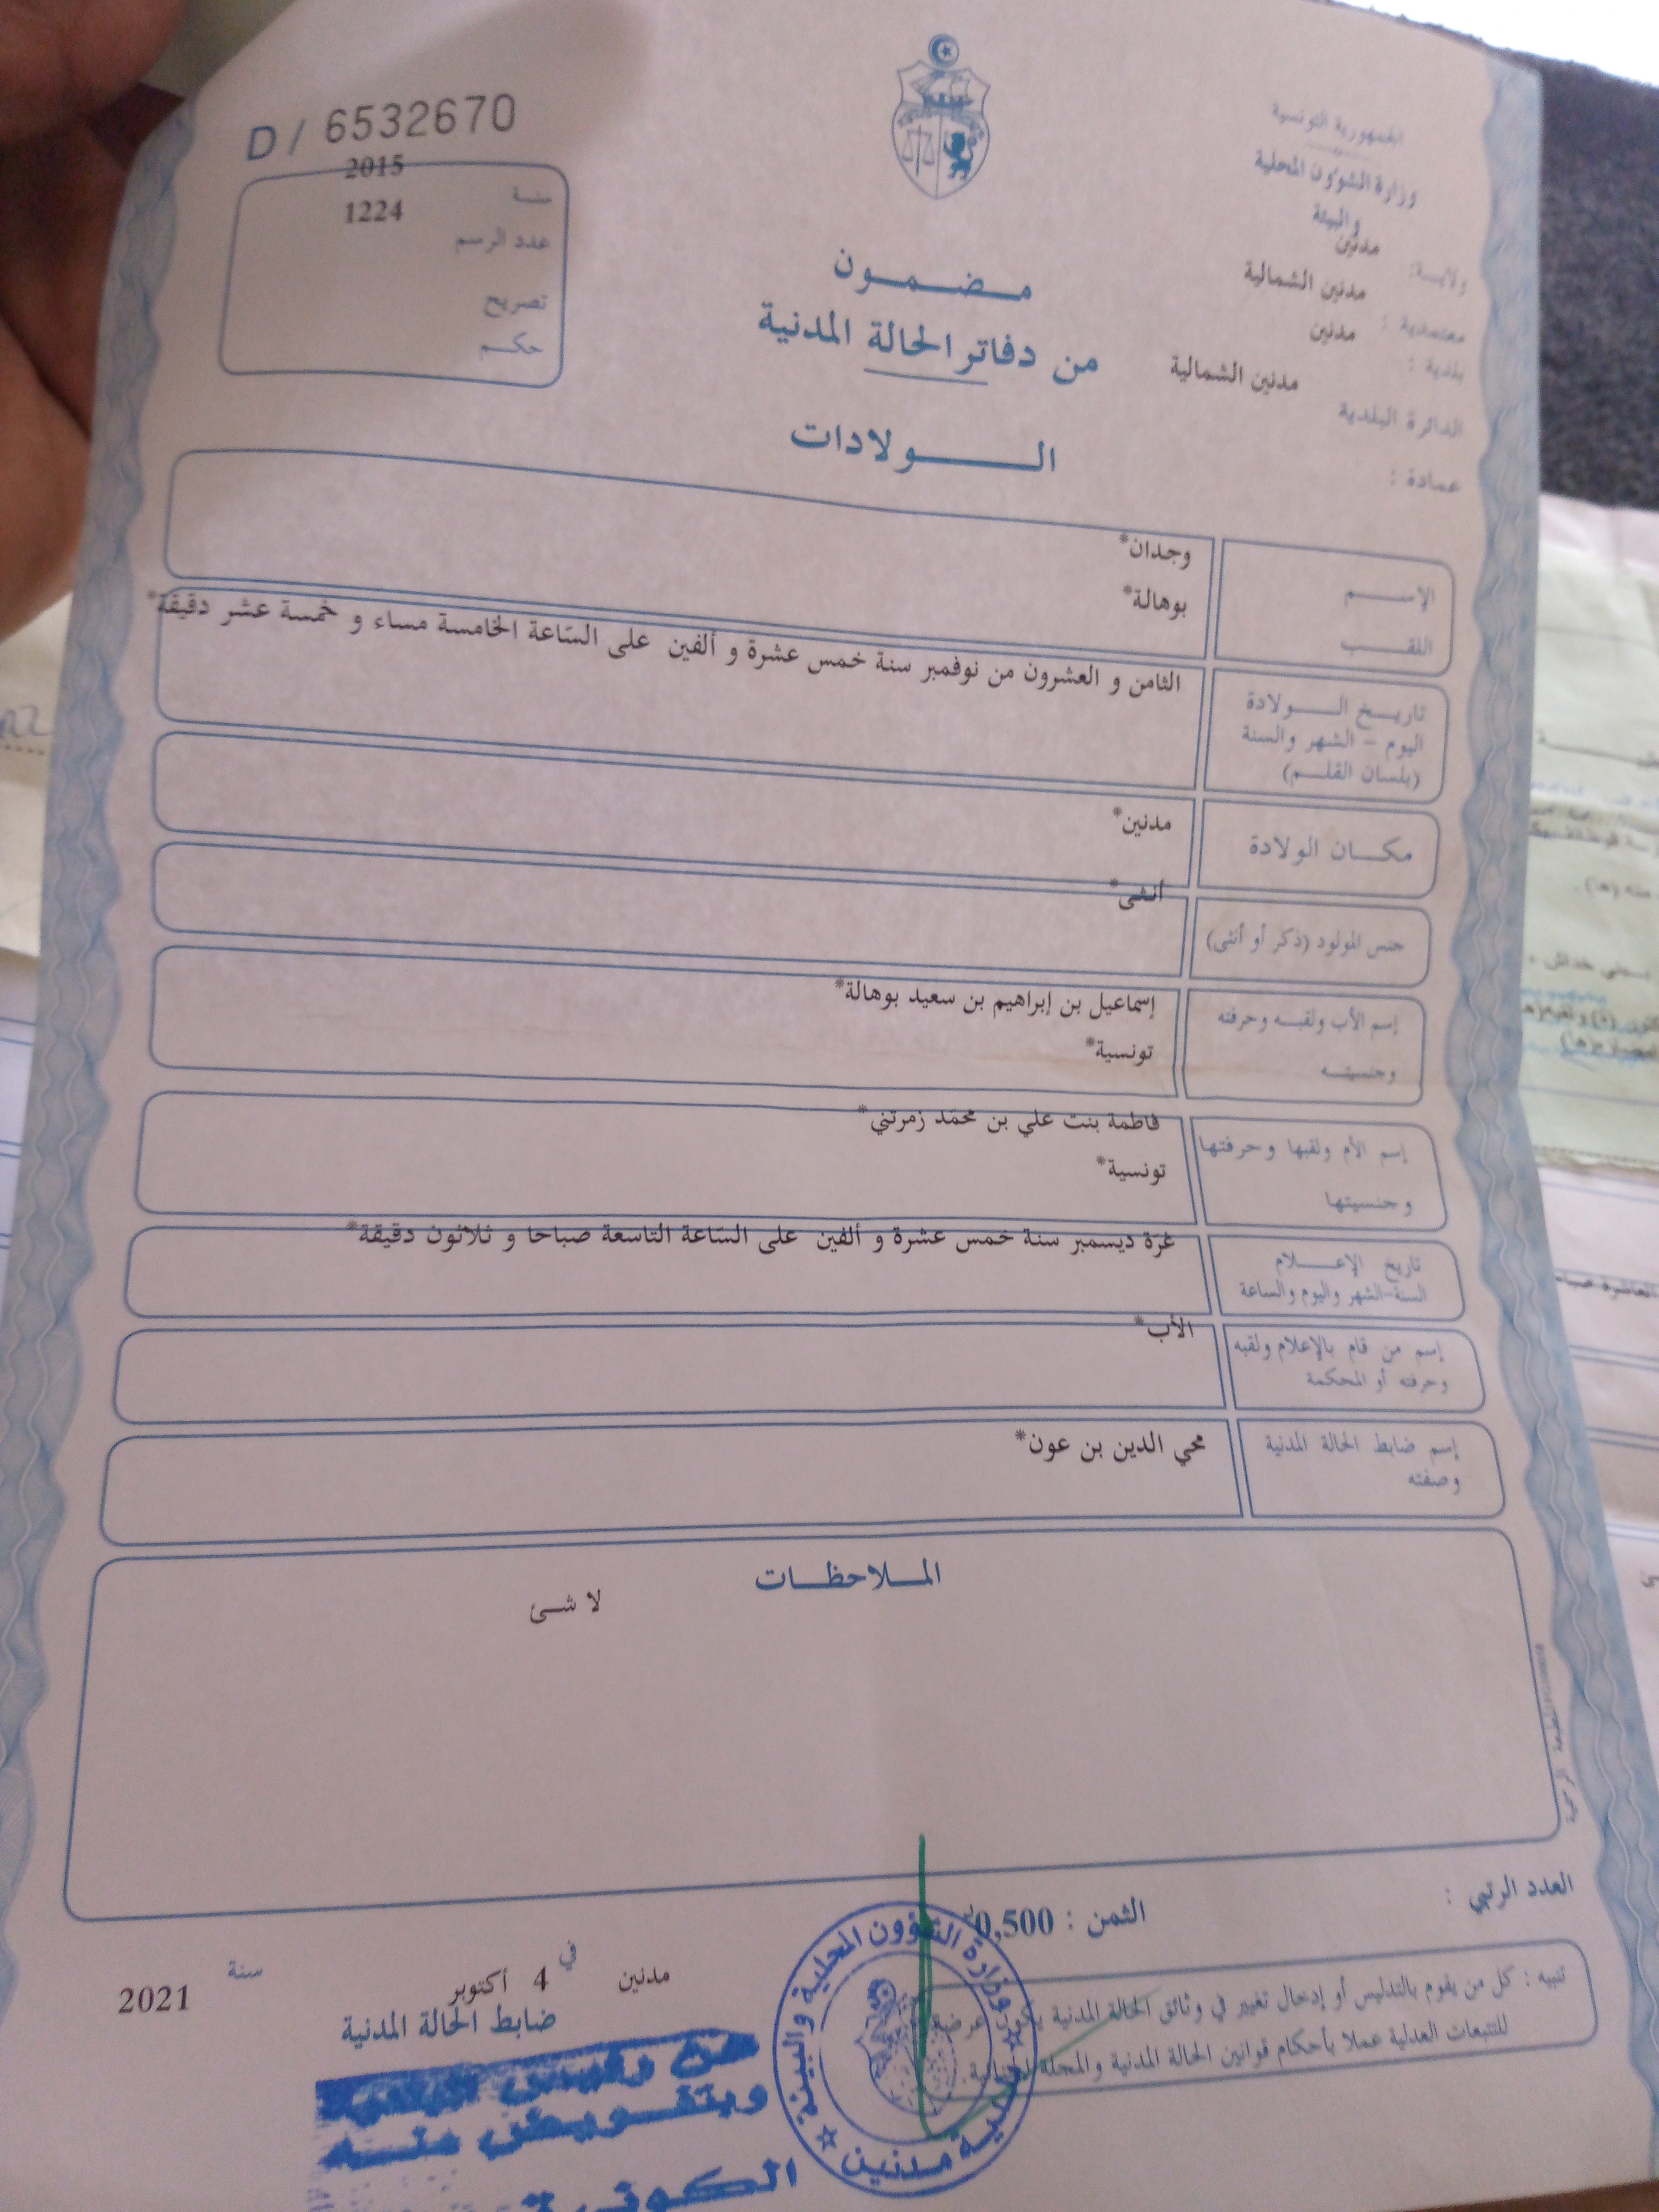 D / 6532670
سنة 2015
عدد الرسم 1224
تصريح
حكم
الجمهورية التونسية
وزارة الشؤون المحلية
والبيئة
ولاية: مدنين
معتمدية : مدنين الشمالية
بلدية : مدنين
الدائرة البلدية مدنين الشمالية
عمادة :
مضمون
من دفاتر الحالة المدنية
الولادات
الإسم وجدان*
اللقب بوهالة*
تاريخ الولادة
اليوم - الشهر والسنة
(بلسان القلم)
الثامن و العشرون من نوفمبر سنة خمس عشرة و ألفين على الساعة الخامسة مساء و خمسة عشر دقيقة*
مكان الولادة مدنين*
جنس المولود (ذكر أو أنثى) أنثى*
إسم الأب ولقبه وحرفته إسماعيل بن إبراهيم بن سعيد بوهالة*
وجنسيته تونسية*
إسم الأم ولقبها وحرفتها فاطمة بنت علي بن محمد زمرتني*
وجنسيتها تونسية*
تاريخ الإعلام
السنة-الشهر واليوم والساعة
غرة ديسمبر سنة خمس عشرة و ألفين على الساعة التاسعة صباحا و ثلاثون دقيقة*
إسم من قام بالإعلام ولقبه
وحرفته أو المحكمة
الأب*
إسم ضابط الحالة المدنية
وصفته
محي الدين بن عون*
الملاحظات
لا شئ
العدد الرتبي :
الثمن : 0,500
تنبيه : كل من يقوم بالتدليس أو إدخال تغيير في وثائق الحالة المدنية يكون عرضة
للتتبعات العدلية عملا بأحكام قوانين الحالة المدنية والمجلة الجنائية.
مدنين في 4 أكتوبر سنة 2021
ضابط الحالة المدنية
عن رئيس البلدية
وبتفويض منه
وزارة الشؤون المحلية والبيئة
بلدية مدنين